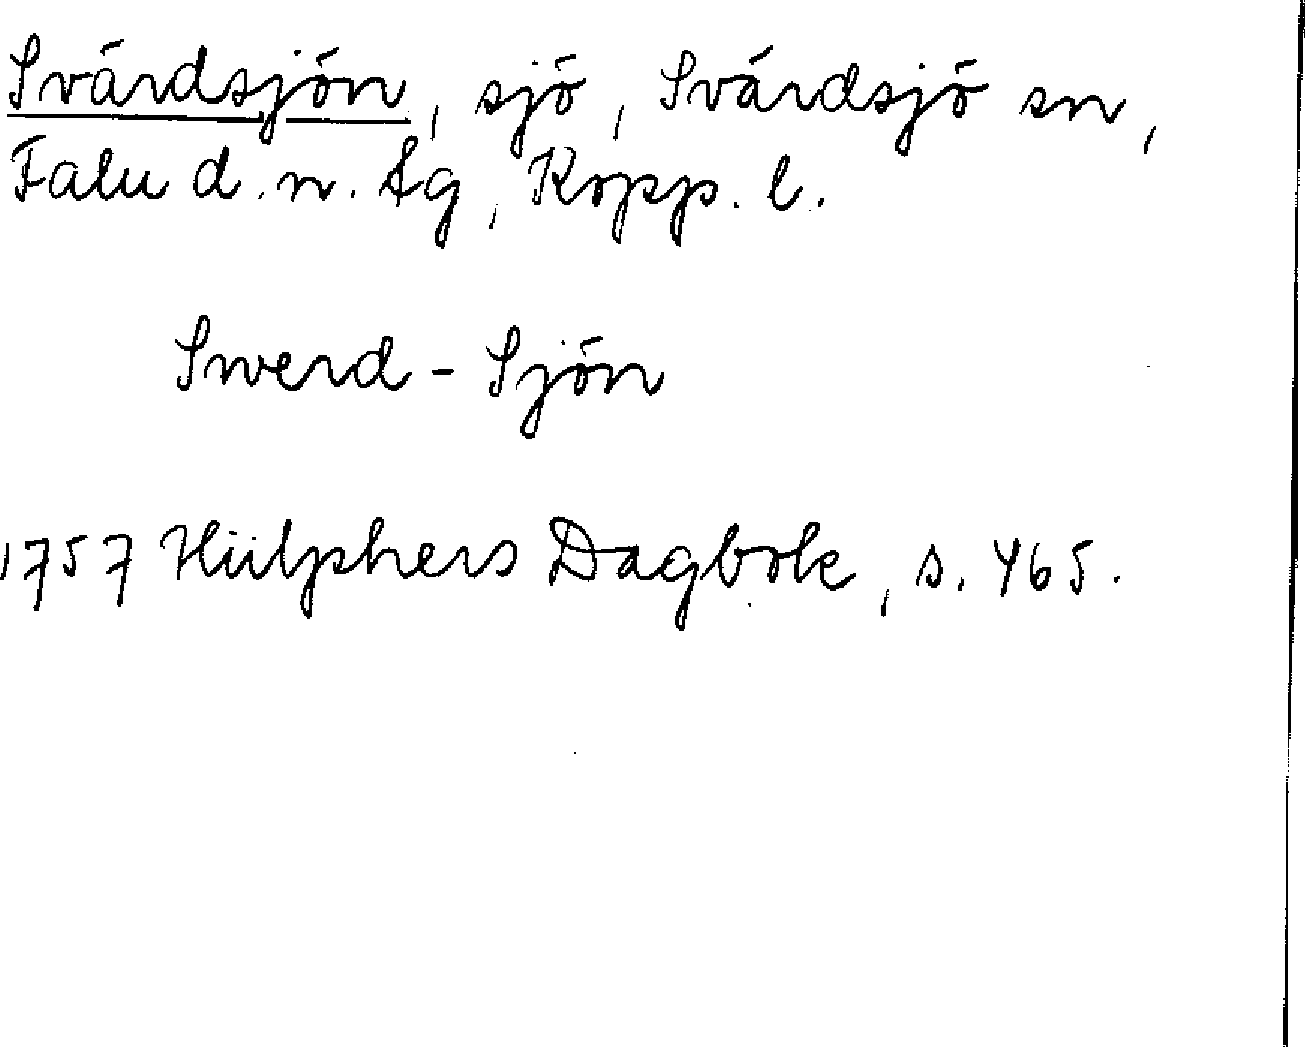 Svärdsjön, sjö, Svärdsjö sn,
Falu d. n. tg, Kopp. l.
Swerd-Sjön
1757 Hülphers Dagbok, s. 465.